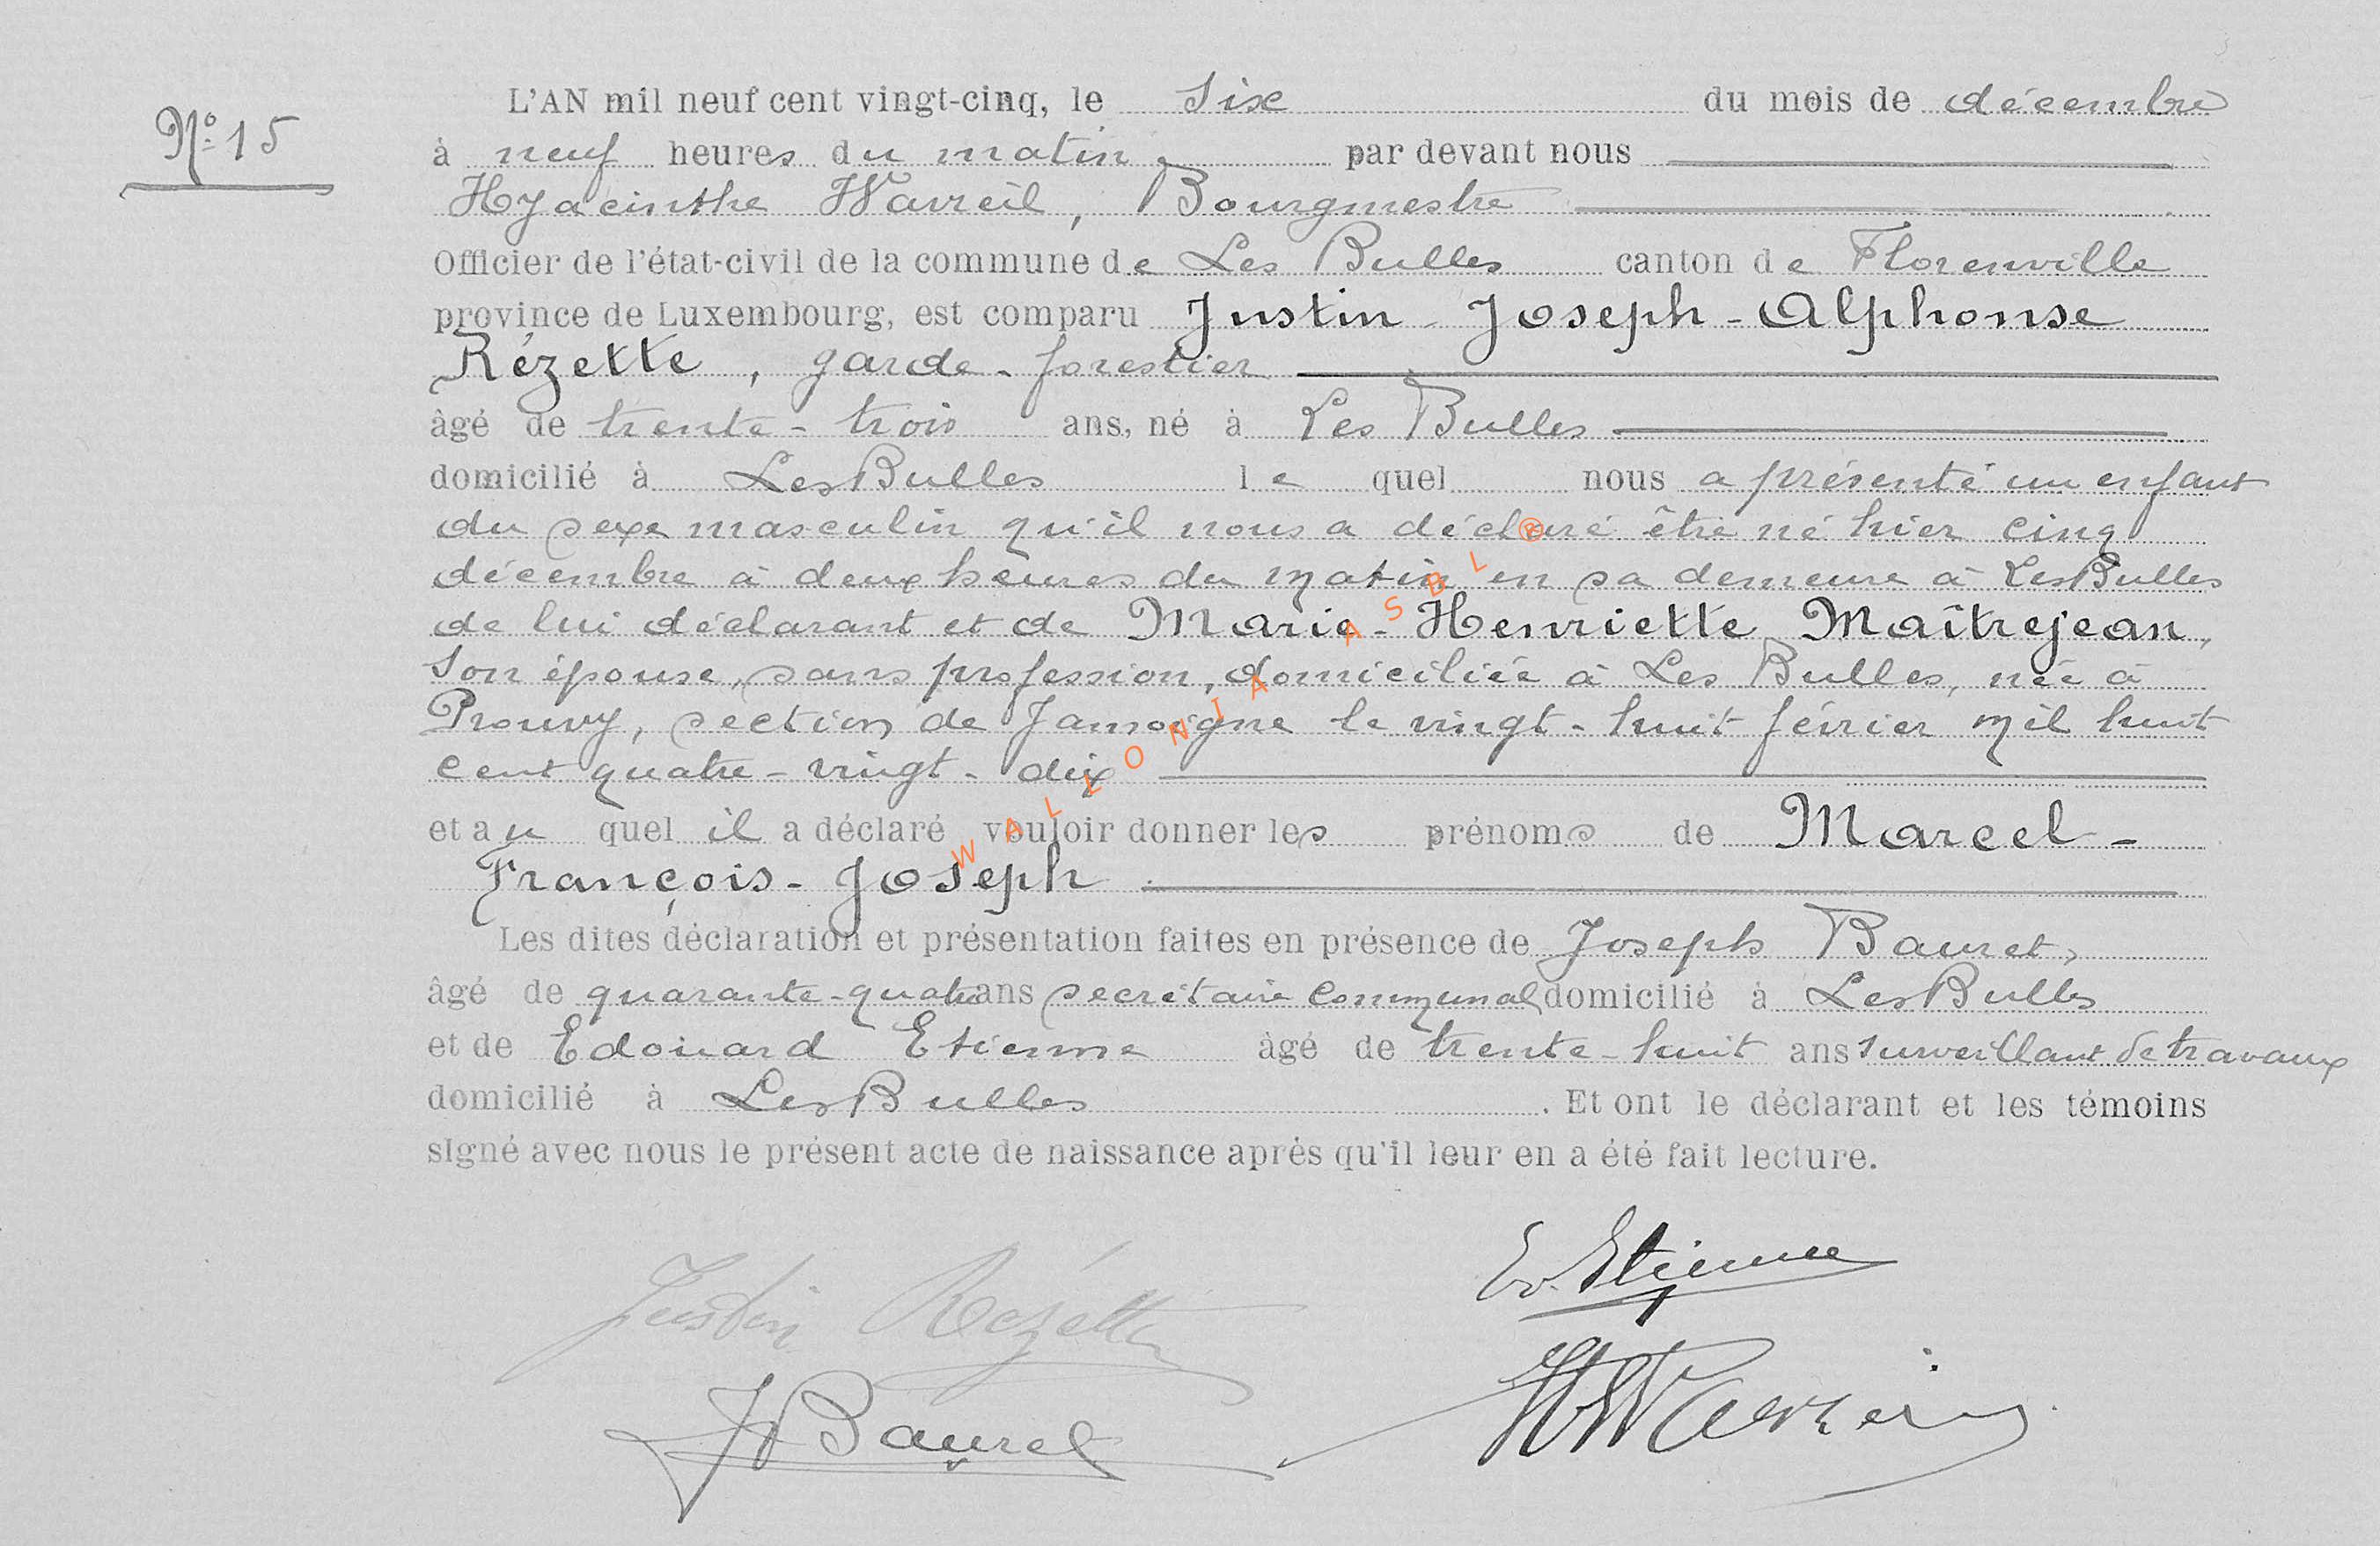 N° 15
L'AN mil neuf cent vingt-cinq, le Six du mois de décembre
à neuf heures du matin par devant nous
Hyacinthe Wavreil, Bourgmestre
Officier de l'état-civil de la commune de Les Bulles canton de Florenville
province de Luxembourg, est comparu Justin-Joseph-Alphonse
Rézette, garde-forestier
âgé de trente-trois ans, né à Les Bulles
domicilié à Les Bulles lequel nous a présenté un enfant
du sexe masculin qu'il nous a déclaré être né hier cinq
décembre à deux heures du matin en sa demeure à Les Bulles
de lui déclarant et de Marie-Henriette Maîtrejean,
son épouse, sans profession, domiciliée à Les Bulles, née à
Prouvy, section de Jamoigne le vingt-huit février mil huit
cent quatre-vingt-dix
et auquel il a déclaré vouloir donner les prénoms de Marcel-
François-Joseph
Les dites déclaration et présentation faites en présence de Joseph Bauret,
âgé de quarante-quatre ans secrétaire communal domicilié à Les Bulles
et de Edouard Etienne âgé de trente-huit ans surveillant de travaux
domicilié à Les Bulles . Et ont le déclarant et les témoins
signé avec nous le présent acte de naissance après qu'il leur en a été fait lecture.
Ed. Etienne
Justin Rezette
HWavreil
JBauret
WALLONIA ASBL ®